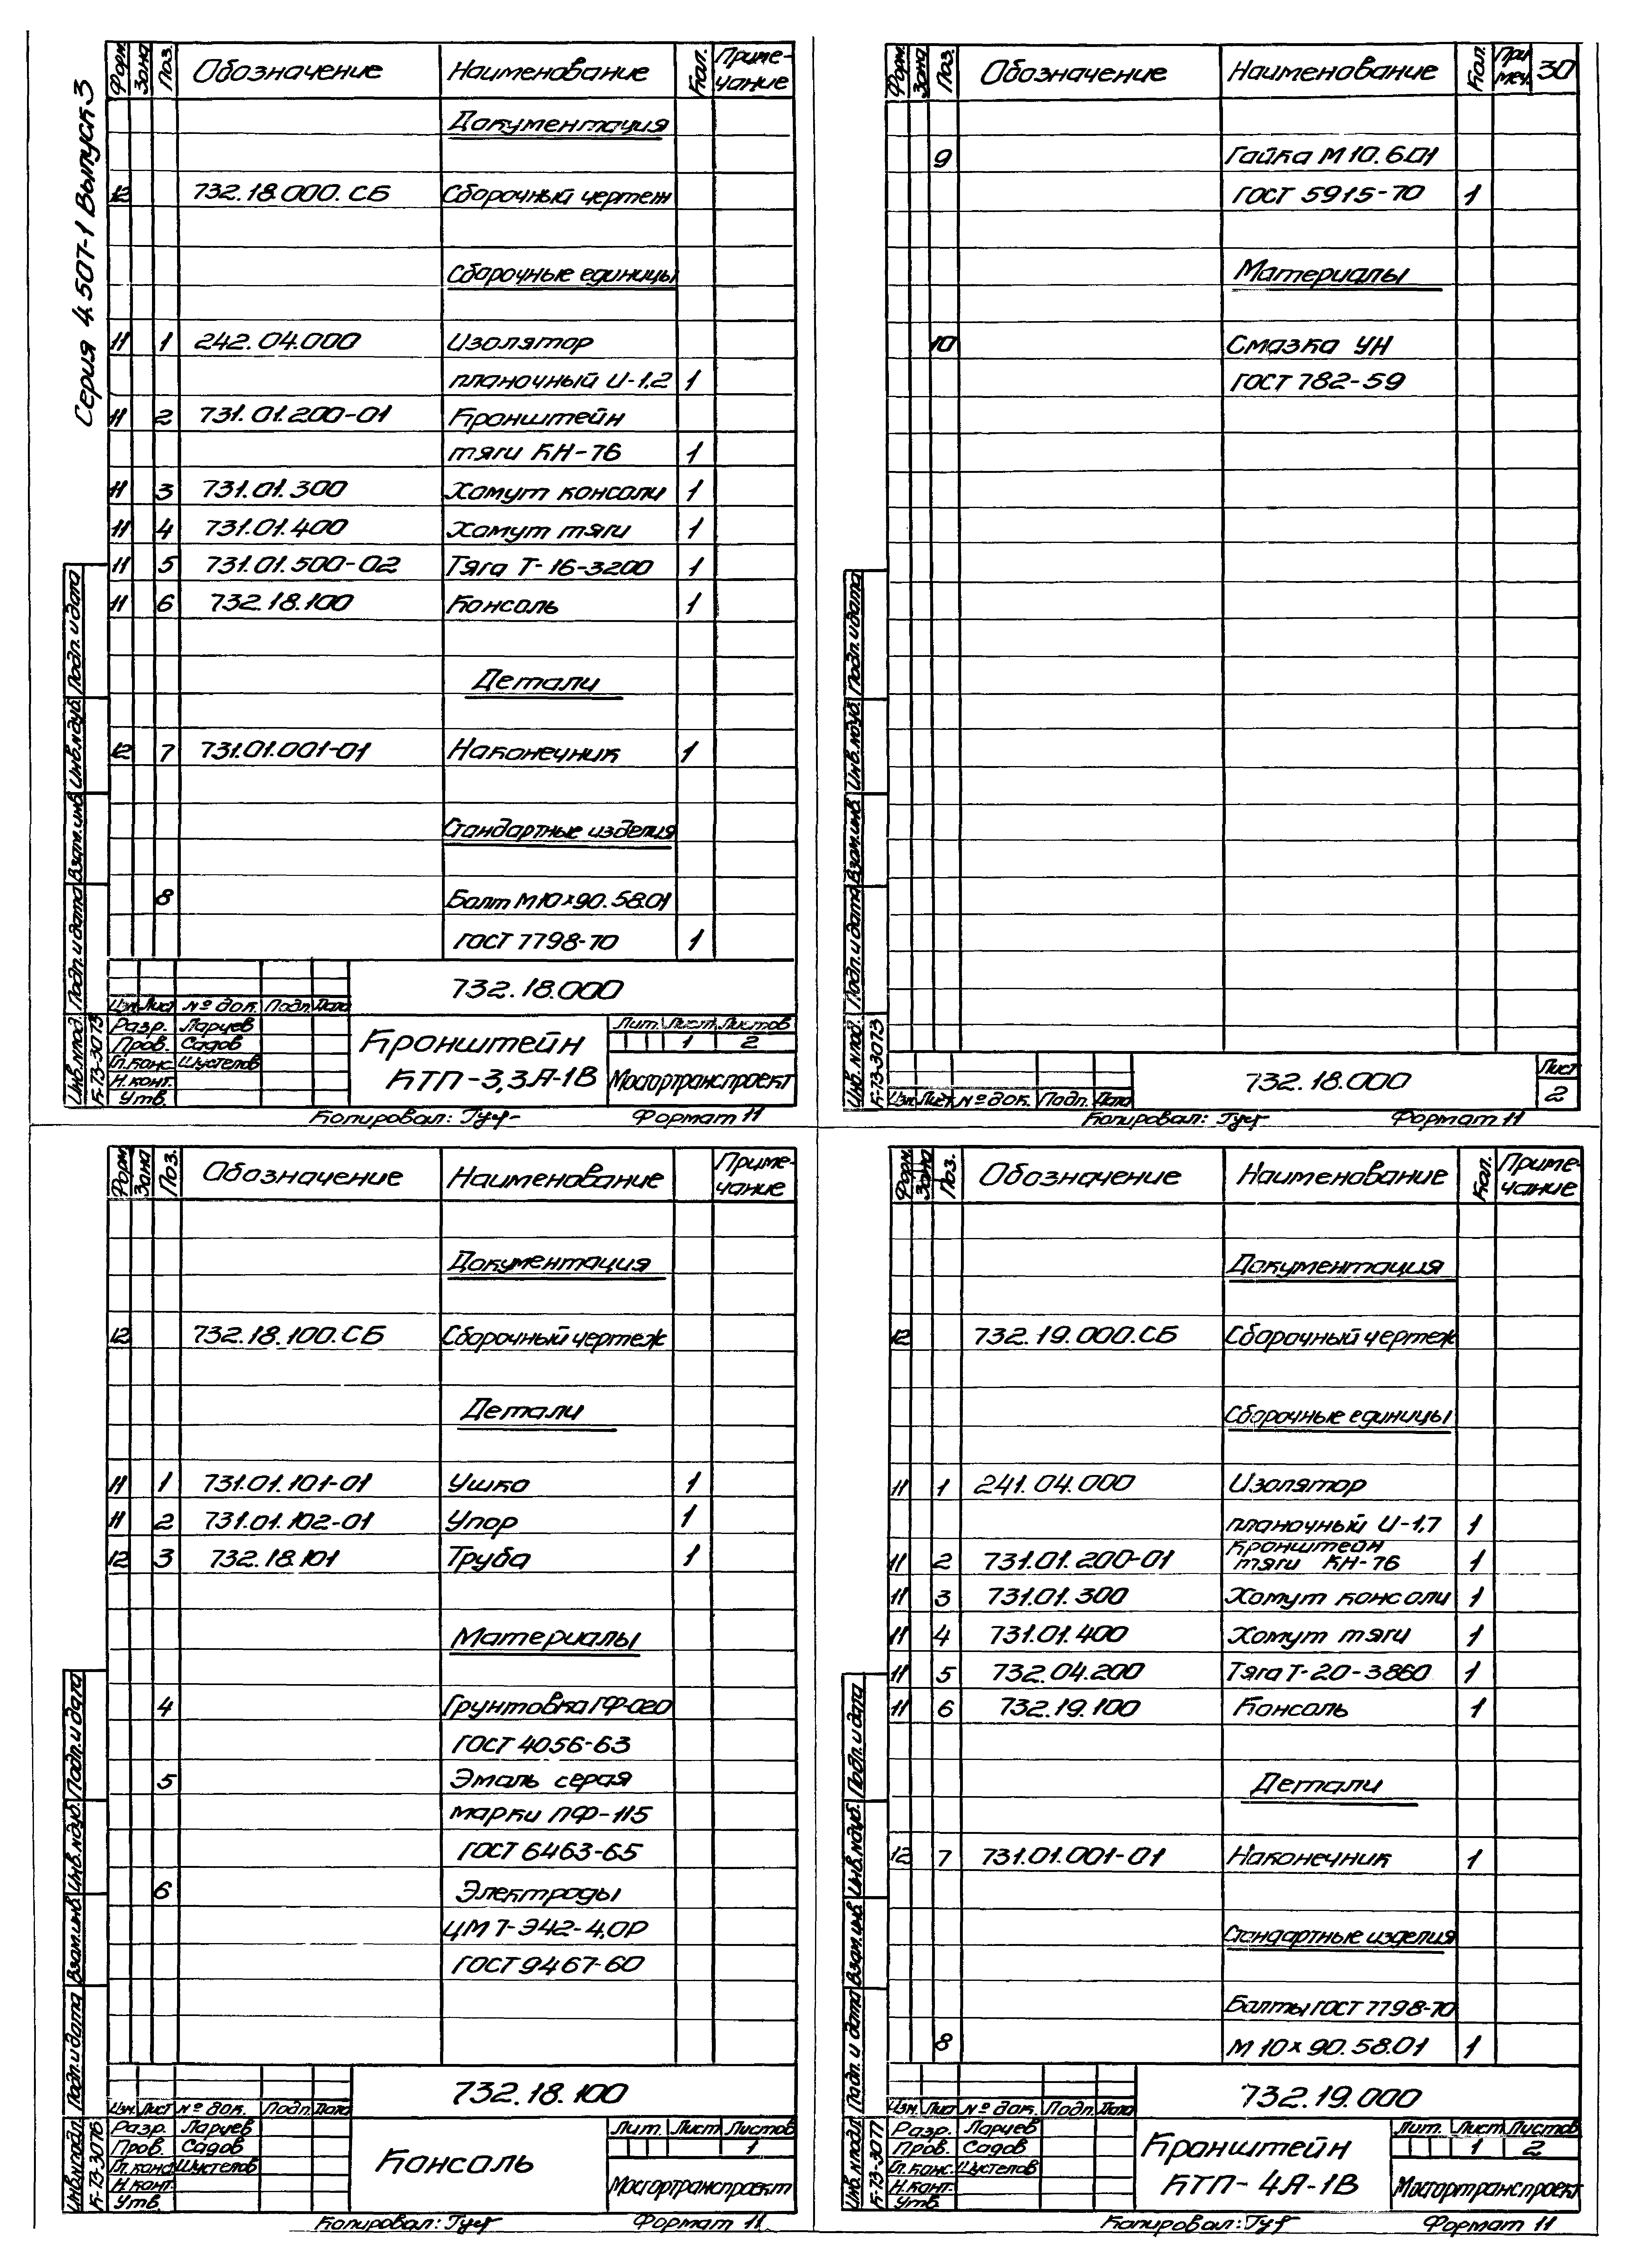 Серия 4.507-1 Выпуск 3
Форм. Зона Поз. Обозначение Наименование Кол. Приме-
чание
Документация
12 732.18.000.СБ Сборочный чертеж
Сборочные единицы
11 1 242.04.000 Изолятор
планочный И-1,2 1
11 2 731.01.200-01 Кронштейн
тяги КН-76 1
11 3 731.01.300 Хомут консоли 1
11 4 731.01.400 Хомут тяги 1
11 5 731.01.500-02 Тяга Т-16-3200 1
11 6 732.18.100 Консоль 1
Детали
12 7 731.01.001-01 Наконечник 1
Стандартные изделия
8 Болт М10х90.58.01
ГОСТ 7798-70 1
732.18.000
Изм. Лист № док. Подп. Дата
Разр. Ларцев
Пров. Садов
Гл.конс. Шустелов
Н.конт.
Утв.
Кронштейн
КТП-3,3А-1В
Лит. Лист Листов
1 2
Мосгортранспроект
Инв.№подл. Подп. и дата Взам.инв. Инв.№дуб. Подп. и дата
К-73-3073
Копировал: Гуф-
Формат 11
Форм. Зона Поз. Обозначение Наименование Кол. При
меч. 30
9 Гайка М10.6.01
ГОСТ 5915-70 1
Материалы
10 Смазка УН
ГОСТ 782-59
Изм. Лист № док. Подп. Дата
732.18.000
Лист
2
Инв.№подл. Подп. и дата Взам.инв. Инв.№дуб. Подп. и дата
К-73-3073
Копировал: Гуф
Формат 11
Форм. Зона Поз. Обозначение Наименование Приме-
чание
Документация
12 732.18.100.СБ Сборочный чертеж
Детали
11 1 731.01.101-01 Ушко 1
11 2 731.01.102-01 Упор 1
12 3 732.18.101 Труба 1
Материалы
4 Грунтовка ГФ-020
ГОСТ 4056-63
5 Эмаль серая
марки ПФ-115
ГОСТ 6463-65
6 Электроды
ЦМ7-Э42-4,0Р
ГОСТ 9467-60
732.18.100
Изм. Лист № док. Подп. Дата
Разр. Ларцев
Пров. Садов
Гл.конс. Шустелов
Н.конт.
Утв.
Консоль
Лит. Лист Листов
1
Мосгортранспроект
Инв.№подл. Подп. и дата Взам.инв. Инв.№дуб. Подп. и дата
К-73-3076
Копировал: Гуф
Формат 11
Форм. Зона Поз. Обозначение Наименование Кол. Приме-
чание
Документация
12 732.19.000.СБ Сборочный чертеж
Сборочные единицы
11 1 241.04.000 Изолятор
планочный И-1,7 1
Кронштейн
11 2 731.01.200-01 тяги КН-76 1
11 3 731.01.300 Хомут консоли 1
11 4 731.01.400 Хомут тяги 1
11 5 732.04.200 Тяга Т-20-3860 1
11 6 732.19.100 Консоль 1
Детали
12 7 731.01.001-01 Наконечник 1
Стандартные изделия
Болты ГОСТ 7798-70
8 М10х90.58.01 1
732.19.000
Изм. Лист № док. Подп. Дата
Разр. Ларцев
Пров. Садов
Гл.конс. Шустелов
Н.конт.
Утв.
Кронштейн
КТП-4А-1В
Лит. Лист Листов
1 2
Мосгортранспроект
Инв.№подл. Подп. и дата Взам.инв. Инв.№дуб. Подп. и дата
К-73-3077
Копировал: Гуф
Формат 11